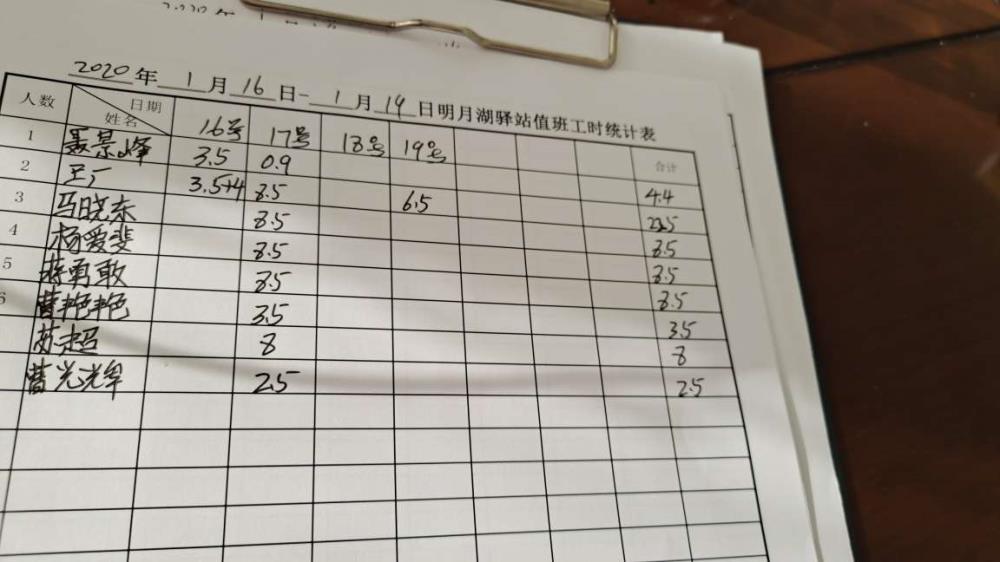 2020年1月16日-1月19日明月湖驿站值班工时统计表
人数 日期 姓名 16号 17号 18号 19号 合计
1 聂景峰 3.5 0.9 4.4
2 王广 3.5+4 8.5 6.5 22.5
3 马晓东 8.5 8.5
4 杨爱斐 8.5 8.5
5 蒋勇敢 8.5 8.5
6 曹艳艳 3.5 3.5
苏超 8 8
曹光辉 2.5 2.5